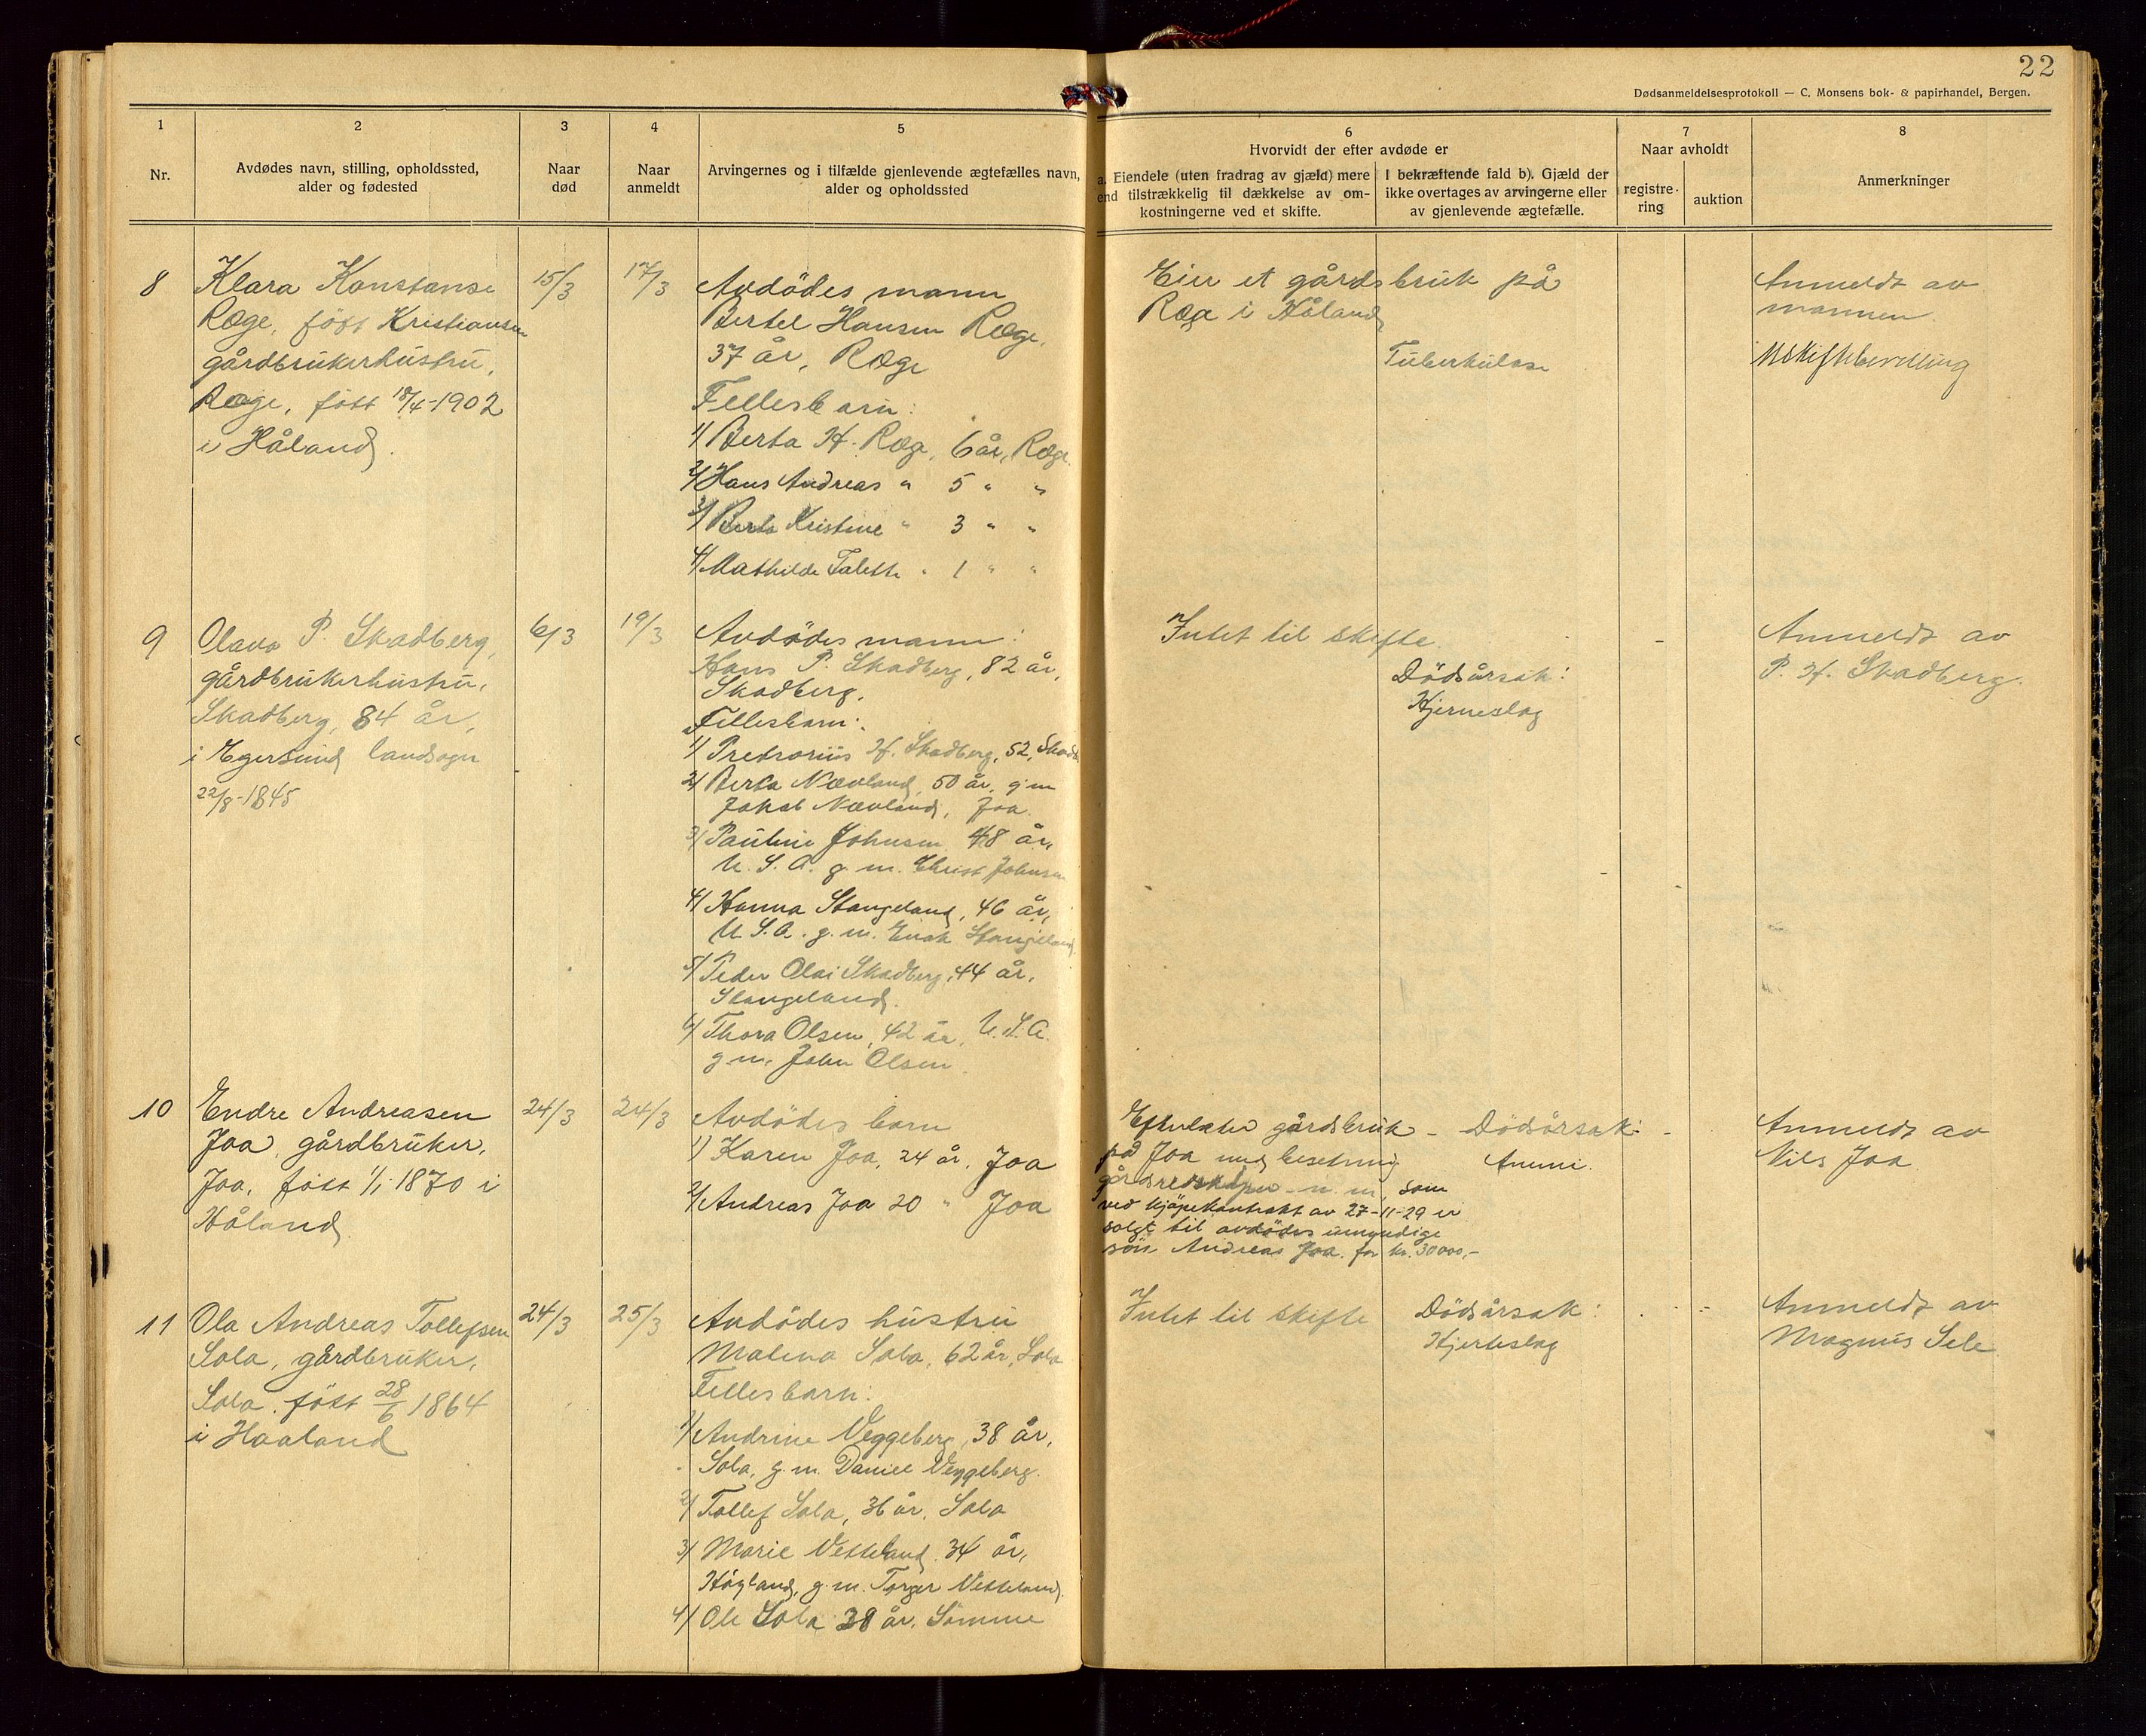 22
Dødsanmeldelsesprotokoll — C. Monsens bok- & papirhandel, Bergen.
1
Nr.
2
Avdødes navn, stilling, opholdssted,
alder og fødested
3
Naar
død
4
Naar
anmeldt
5
Arvingernes og i tilfælde gjenlevende ægtefælles navn,
alder og opholdssted
6
Hvorvidt der efter avdøde er
a. Eiendele (uten fradrag av gjæld) mere
end tilstrækkelig til dækkelse av om-
kostningerne ved et skifte.
I bekræftende fald b). Gjæld der
ikke overtages av arvingerne eller
av gjenlevende ægtefælle.
7
Naar avholdt
registre-
ring
auktion
8
Anmerkninger
8
Klara Konstanse
Ræge, født Kristiansen
gårdbrukerhustru,
Ræge, født 18/4-1902
i Håland.
15/3
17/3
Avdødes mann
Bertel Hansen Ræge,
37 år, Ræge
Fellesbarn:
1/ Berta H. Ræge, 6 år, Ræge
2/ Hans Andreas " 5 " "
3/ Berta Kristine " 3 " "
4/ Mathilde Talette " 1 " "
Eier et gårdsbruk på
Ræge i Håland
Tuberkulose
Anmeldt av
mannen.
Uskiftebevilling
9
Olava P. Skadberg,
gårdbrukerhustru,
Skadberg, 84 år,
i Egersund landsogn
22/8-1845
6/3
19/3
Avdødes mann:
Hans P. Skadberg, 82 år,
Skadberg.
Fellesbarn:
1/ Pedrorius H. Skadberg, 52, Skadb.
2/ Berta Nævland, 50 år, g m
Jakob Nævland, Joa.
3/ Pauline Johnsen 48 år,
U. S. A. g. m. Christ Johnsen
4/ Hanna Stangeland, 46 år,
U. S. A. g. m. Enok Stangeland
5/ Peder Olai Skadberg, 44 år,
Stangeland.
6/ Thora Olsen, 42 år, U. S. A.
g m. John Olsen
Intet til skifte.
Dødsårsak:
Hjerneslag
Anmeldt av
P. H. Skadberg.
10
Endre Andreasen
Joa, gårdbruker,
Joa, født 1/1-1870 i
Håland
24/3
24/3
Avdødes barn
1) Karen Joa, 24 år, Joa
2/ Andreas Joa 20 " Joa
Efterlater gårdsbruk -
på Joa med besetning
gårdsredskaper m. m, som
ved kjøpekontrakt av 27-11-29 er
solgt til avdødes umyndige
søn Andreas Joa. for kr. 30000,-
Dødsårsak:
Anemi.
Anmeldt av
Nils Joa
11
Ola Andreas Tollefsen
Sola, gårdbruker,
Sola. født 28/6 1864
i Haaland
24/3
25/3
Avdødes hustru
Malena Sola, 62 år, Sola
Fellesbarn:
1/ Andrine Veggeberg, 38 år,
Sola, g. m. Daniel Veggeberg.
2/ Tollef Sola, 36 år, Sola
3/ Marie Vetteland 34 år,
Høgland, g. m. Torger Vetteland
4/ Ole Sola 28 år, Sømme
Intet til skifte
Dødsårsak:
Hjerteslag
Anmeldt av
Magnus Sele